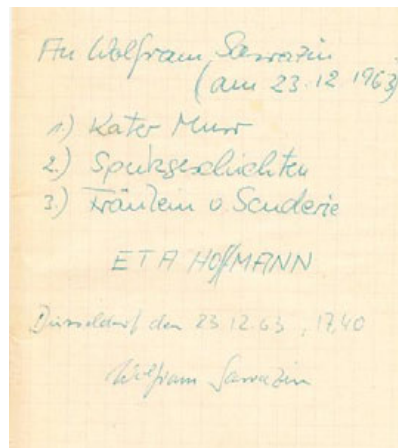 An Wolfram Sarrazin
(am 23.12.1963)
1.) Kater Murr
2.) Spukgeschichten
3.) Fräulein v. Scuderie
ETA HOffMANN
Düsseldorf den 23 12.63, 17,40
Wolfram Sarrazin